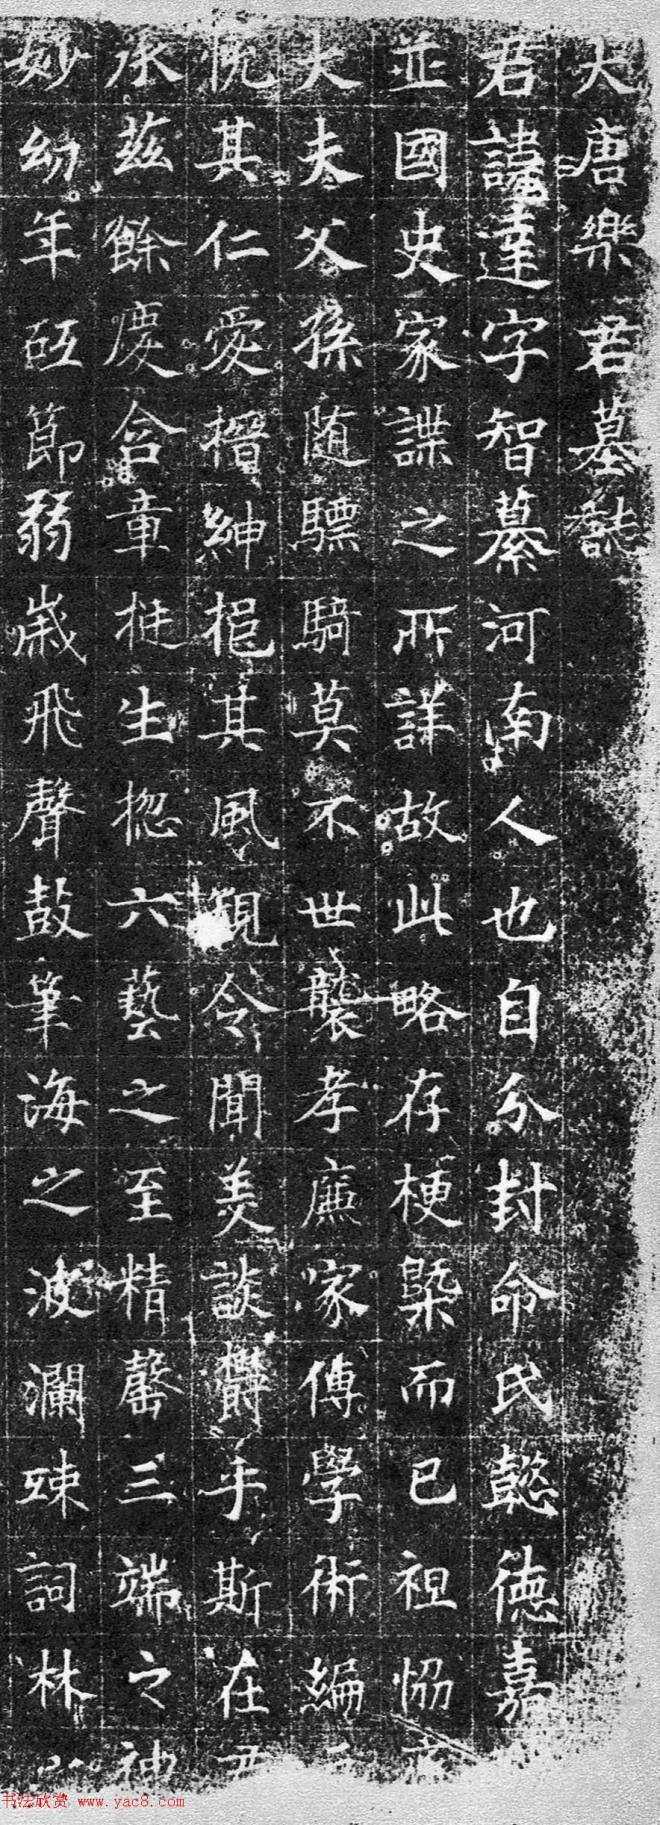 大唐樂君墓誌
君諱達字智纂河南人也自分封命氏懿德嘉
並國史家諜之所詳故此略存梗槩而已祖恊
大夫父孫随驃騎莫不世襲孝廉家傳學術編
忱其仁愛搢紳挹其風覩令聞美談欝乎斯在
承茲餘慶含章挻生揔六藝之至精罄三端之神
妙幼年砥節弱歲飛聲鼓筆海之波瀾竦詞林
书法欣赏 www.yac8.com